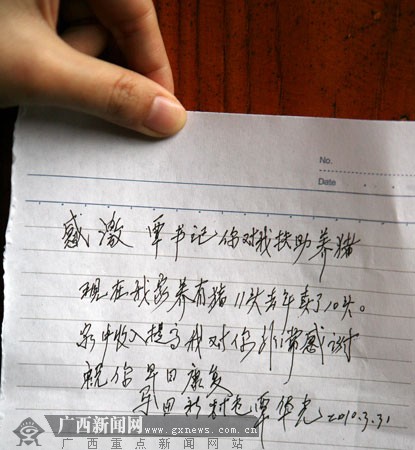 No.
Date
感激 覃书记你对我扶助养猪
现在我家养有猪11头去年卖了10头。
家中收入提高我对你非常感谢
祝你早日康复
覃华尧 2010.3.31
广西新闻网
www.gxnews.com.cn
广西重点新闻网站